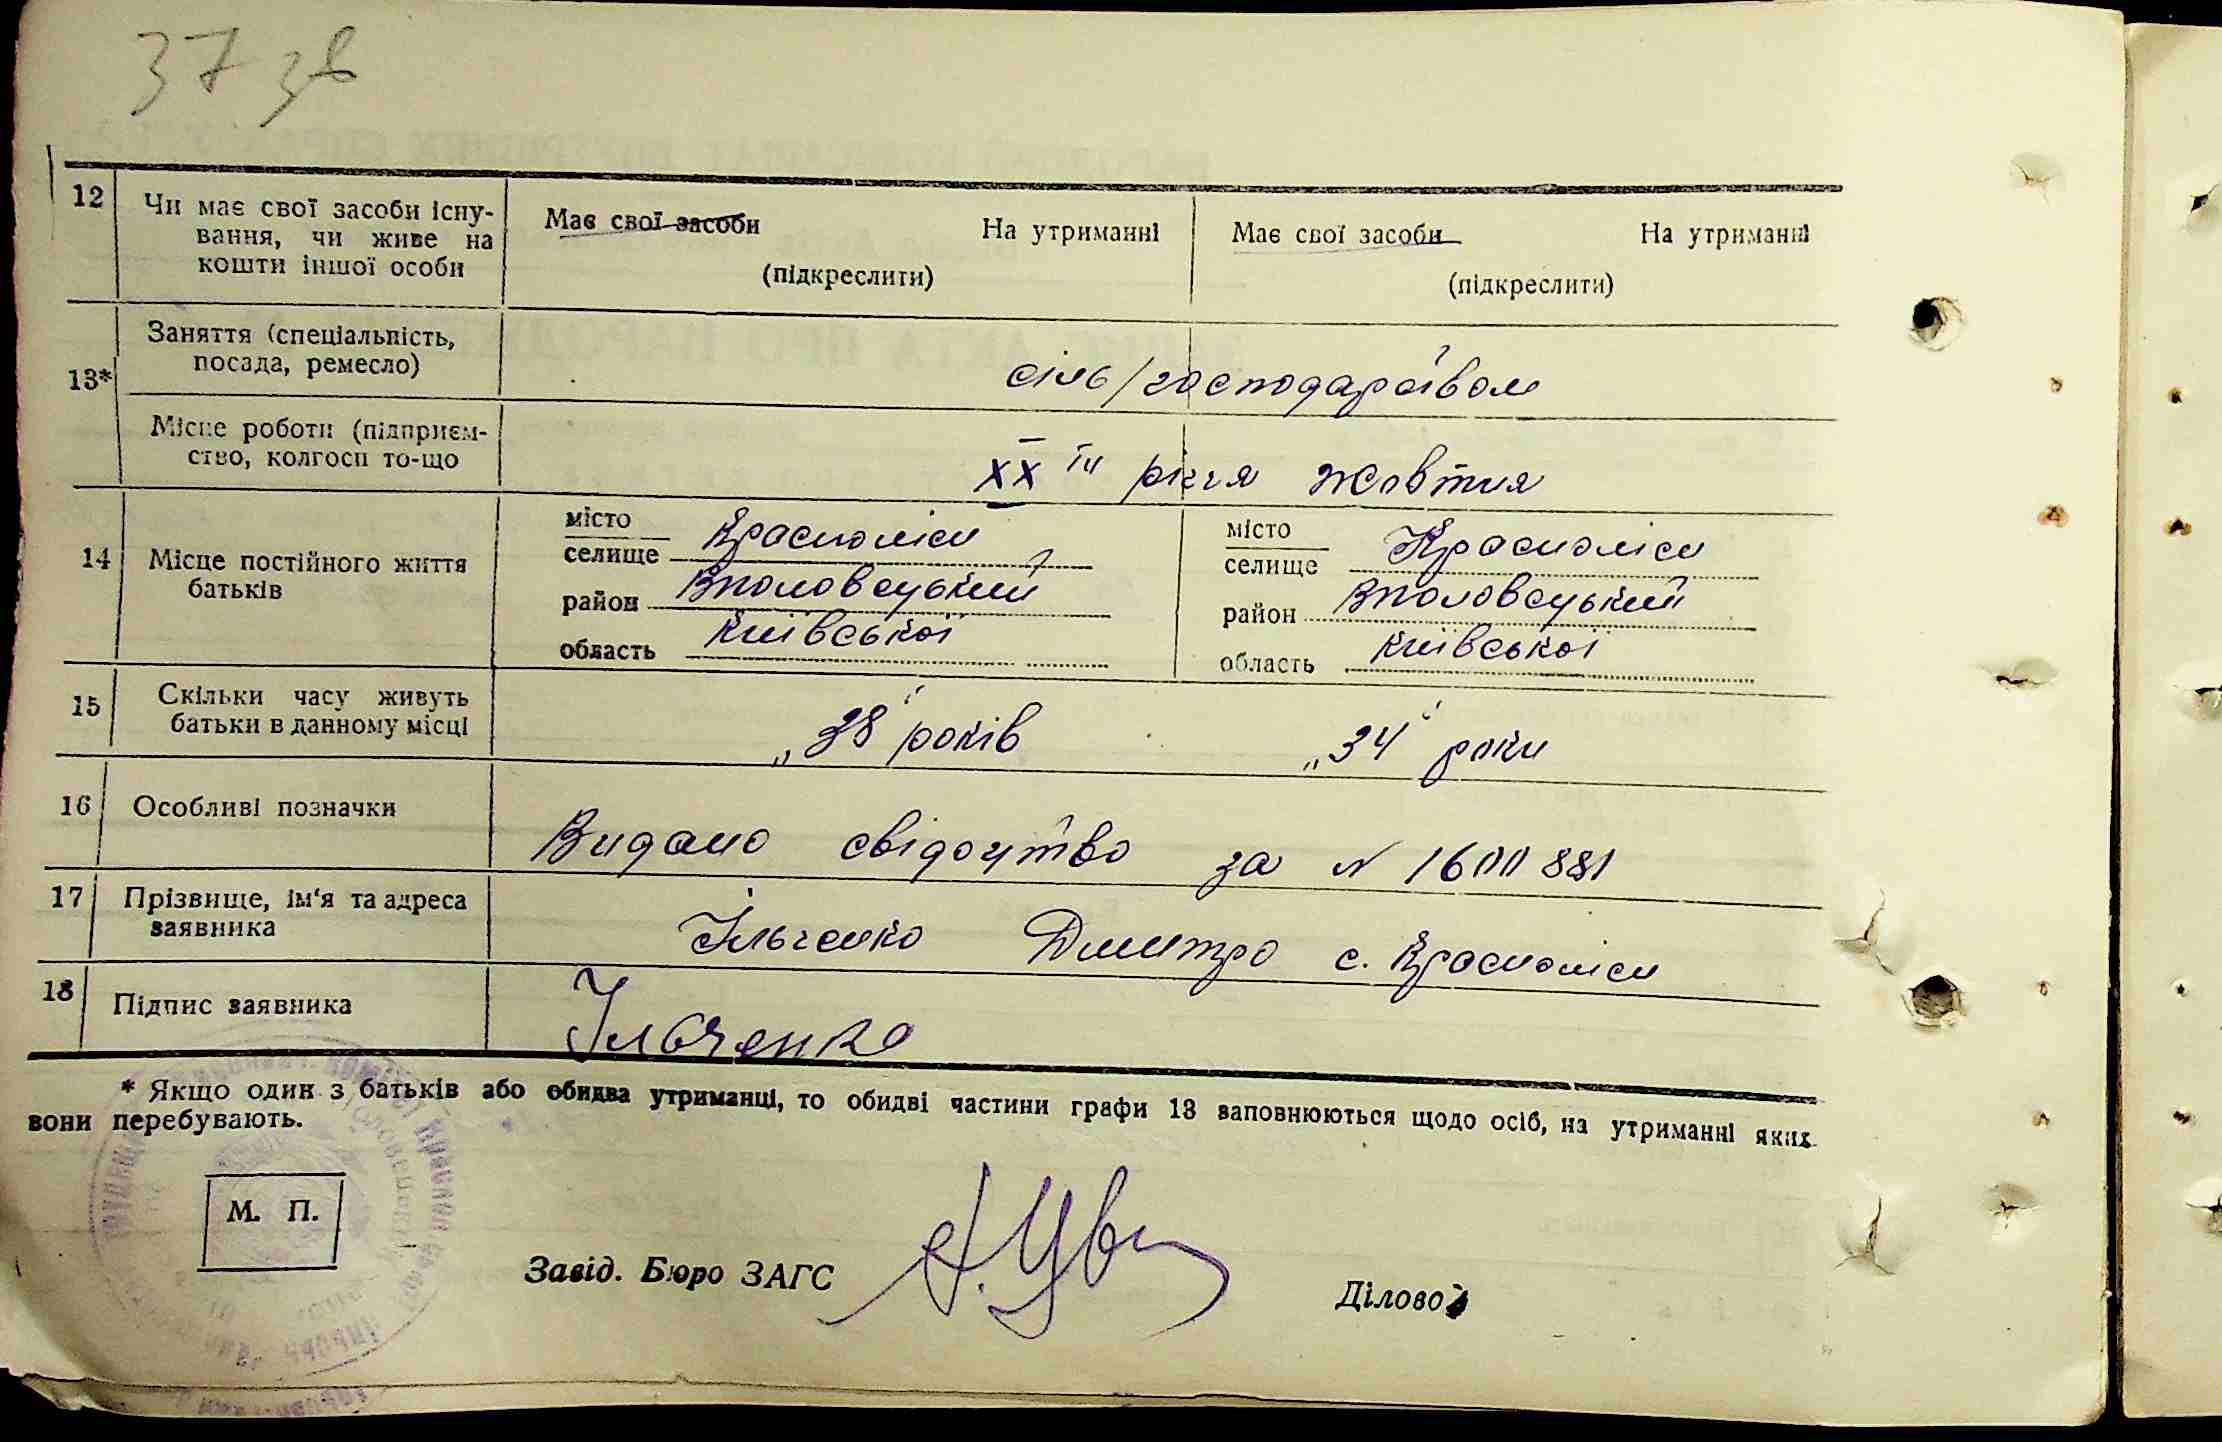 37 зв
12 Чи має свої засоби існу-
вання, чи живе на
кошти іншої особи
Має свої засоби На утриманні
(підкреслити)
Має свої засоби На утриманні
(підкреслити)
13* Заняття (спеціальність,
посада, ремесло)
сіль/господарством
Місце роботи (підприєм-
ство, колгосп то-що
ХХ ти річчя жовтня
14 Місце постійного життя
батьків
місто
селище Красноліси
район Володовецький
область Київської
місто
селище Красноліси
район
область Київської
15 Скільки часу живуть
батьки в данному місці
„38" років „34" роки
16 Особливі позначки
Видано свідоцтво за N 1600881
17 Прізвище, ім'я та адреса
заявника
Ільченко Дмитро с. Красноліси
18 Підпис заявника
Ільченко
* Якщо один з батьків або обидва утриманці, то обидві частини графи 13 заповнюються щодо осіб, на утриманні яких
вони перебувають.
М. П.
Завід. Бюро ЗАГС
Діловод